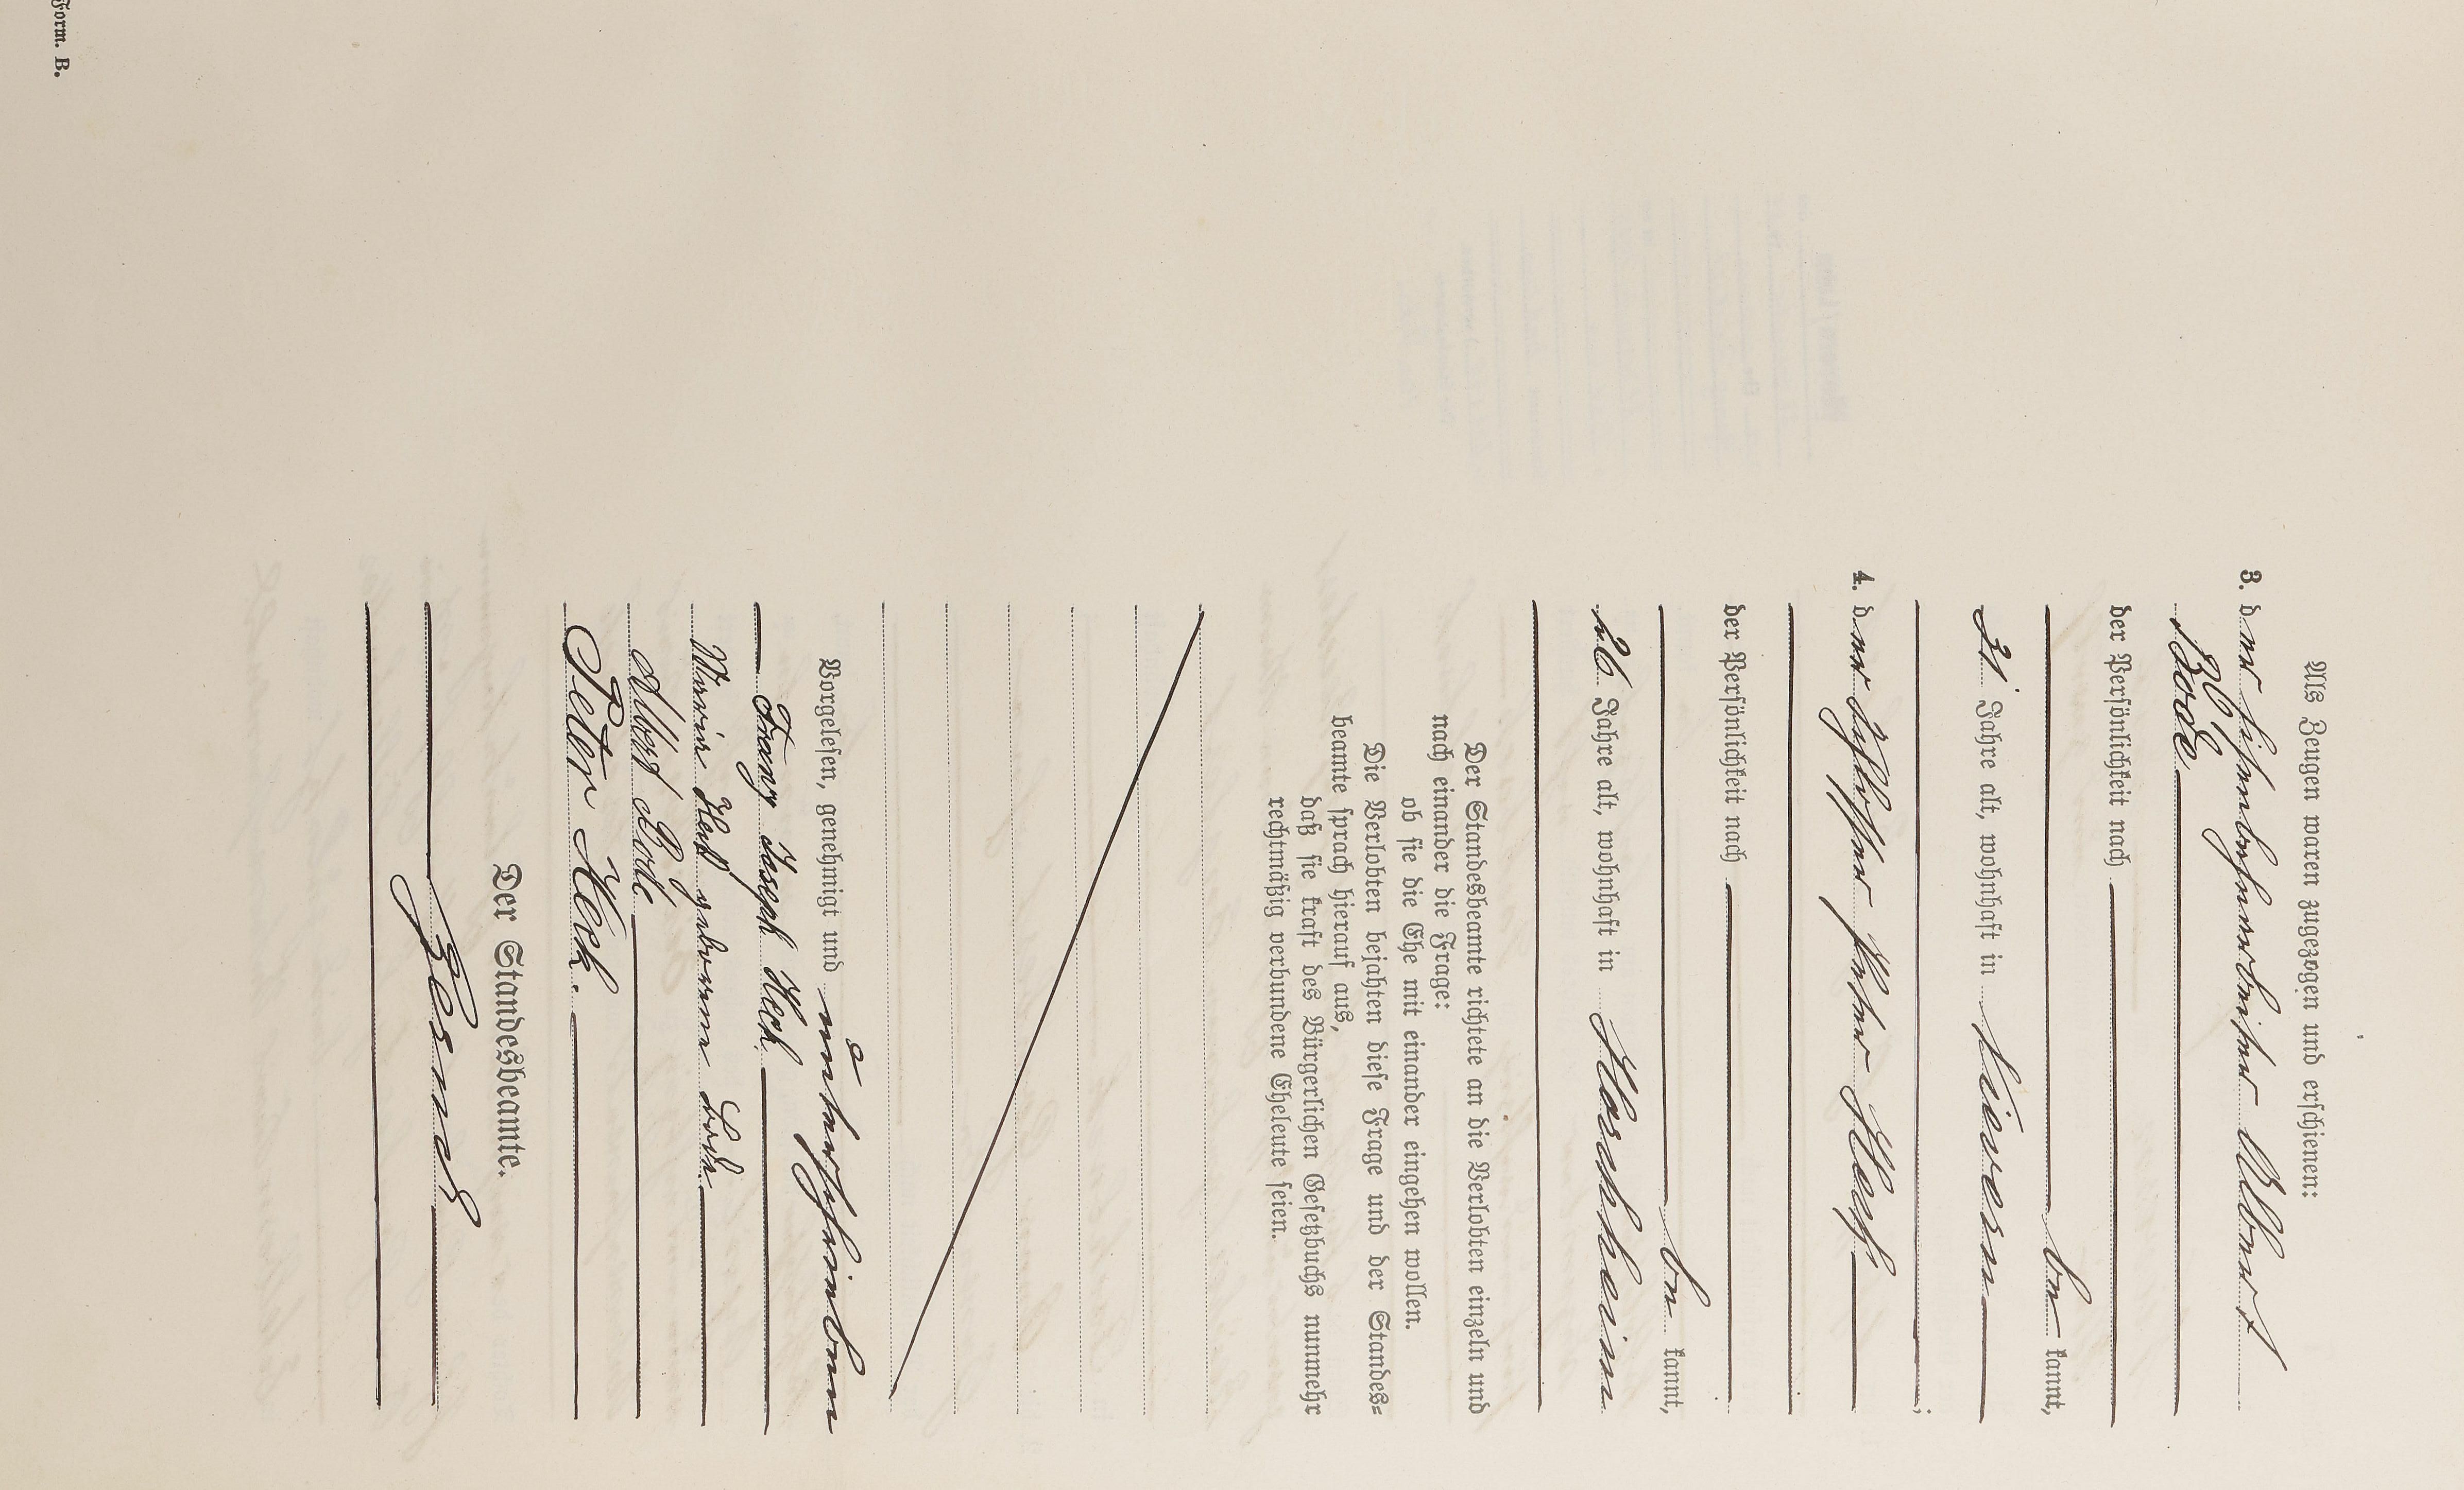 Als Zeugen waren zugezogen und erschienen:
3. der Eisenbahnarbeiter Albert
Bode
der Persönlichkeit nach
be kannt,
31 Jahre alt, wohnhaft in Lievern
;
4. der Schlosser Peter Heck
der Persönlichkeit nach
be kannt,
26 Jahre alt, wohnhaft in Horchheim
Der Standesbeamte richtete an die Verlobten einzeln und
nach einander die Frage:
ob sie die Ehe mit einander eingehen wollen.
Die Verlobten bejahten diese Frage und der Standes=
beamte sprach hierauf aus,
daß sie kraft des Bürgerlichen Gesetzbuchs nunmehr
rechtmäßig verbundene Eheleute seien.
Vorgelesen, genehmigt und unterschrieben
Franz Joseph Heck.
Maria Heck geborene Bode.
Albert Bode
Peter Heck.
Der Standesbeamte.
Form. B.